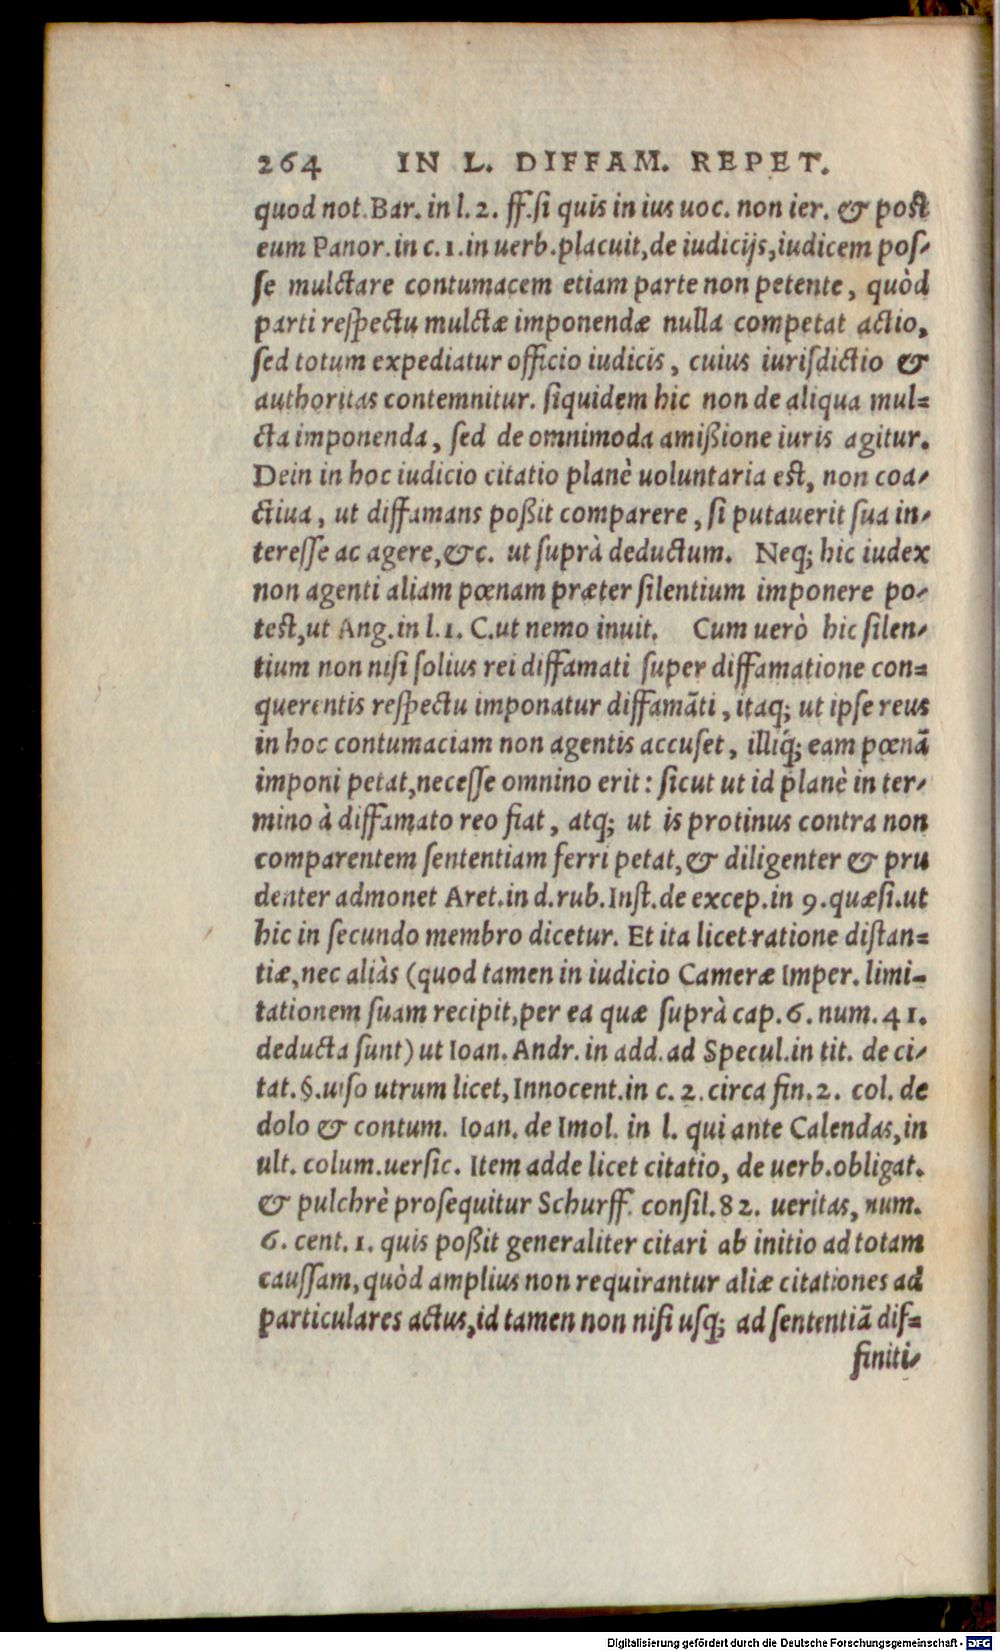 264 IN L. DIFFAM. REPET.
quod not. Bar. in l. 2. ff. ſi quis in ius uoc. non ier. & poſt
eum Panor. in c. 1. in uerb. placuit, de iudicijs, iudicem poſ-
ſe mulctare contumacem etiam parte non petente, quòd
parti reſpectu mulctæ imponendæ nulla competat actio,
ſed totum expediatur officio iudicis, cuius iuriſdictio &
authoritas contemnitur. ſiquidem hic non de aliqua mul=
cta imponenda, ſed de omnimoda amißione iuris agitur.
Dein in hoc iudicio citatio planè uoluntaria eſt, non coa-
ctiua, ut diffamans poßit comparere, ſi putauerit ſua in-
tereſſe ac agere, &c. ut ſuprà deductum. Neq; hic iudex
non agenti aliam pœnam præter ſilentium imponere po-
teſt, ut Ang. in l. 1. C. ut nemo inuit. Cum uerò hic ſilen-
tium non niſi ſolius rei diffamati ſuper diffamatione con=
querentis reſpectu imponatur diffamãti, itaq; ut ipſe reus
in hoc contumaciam non agentis accuſet, illiq́; eam pœnã
imponi petat, neceſſe omnino erit: ſicut ut id planè in ter-
mino à diffamato reo fiat, atq; ut is protinus contra non
comparentem ſententiam ferri petat, & diligenter & pru
denter admonet Aret. in d. rub. Inſt. de excep. in 9. quæſi. ut
hic in ſecundo membro dicetur. Et ita licet ratione diſtan=
tiæ, nec aliàs (quod tamen in iudicio Cameræ Imper. limi-
tationem ſuam recipit, per ea quæ ſuprà cap. 6. num. 41.
deducta ſunt) ut Ioan. Andr. in add. ad Specul. in tit. de ci-
tat. §. uiſo utrum licet, Innocent. in c. 2. circa fin. 2. col. de
dolo & contum. Ioan. de Imol. in l. qui ante Calendas, in
ult. colum. uerſic. Item adde licet citatio, de uerb. obligat.
& pulchrè proſequitur Schurff. conſil. 82. ueritas, num.
6. cent. 1. quis poßit generaliter citari ab initio ad totam
cauſſam, quòd amplius non requirantur aliæ citationes ad
particulares actus, id tamen non niſi uſq; ad ſententiã dif=
finiti-
Digitalisierung gefördert durch die Deutsche Forschungsgemeinschaft - DFG